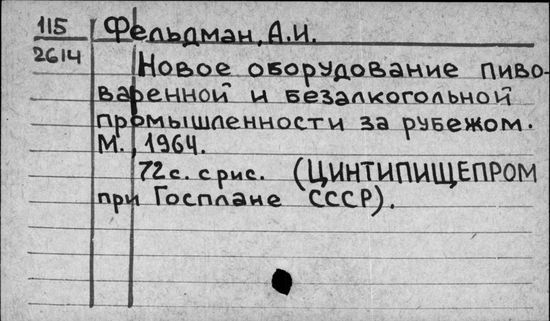 115 Фельдман, А.И.
2614
Новое оборудование пиво-
варенной и безалкогольной
промышленности за рубежом.
М., 1964.
72 с. с рис. (ЦИНТИПИЩЕПРОМ
при Госплане СССР).